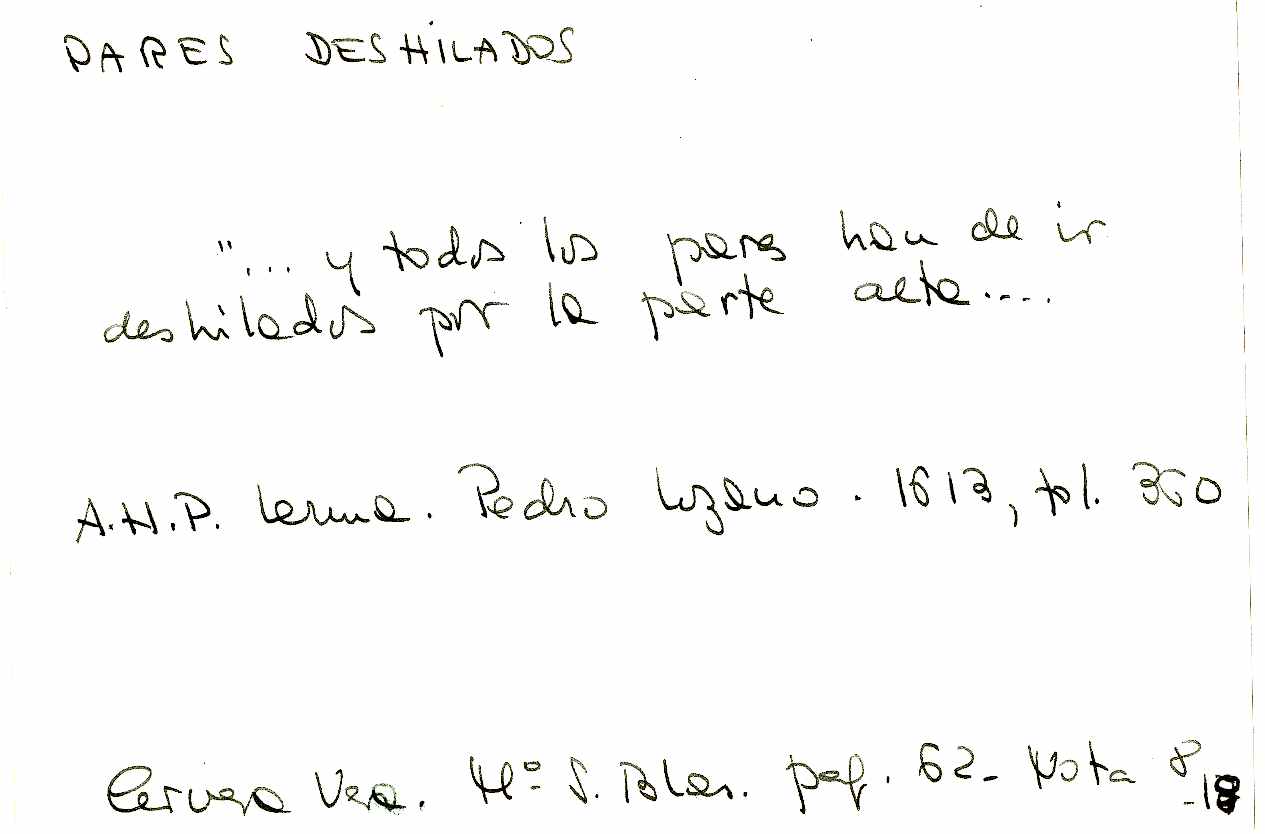 PARES DESHILADOS
"... y todos los pares han de ir
deshilados por la parte alta....
A.H.P. Lerma. Pedro Lozano. 1613, fol. 360
Cervera Vera. Mº S. Blas. pag. 62- Nota 8